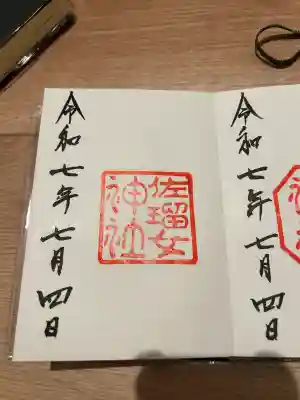 令和七年七月四日
佐瑠女
神社
令和七年七月四日